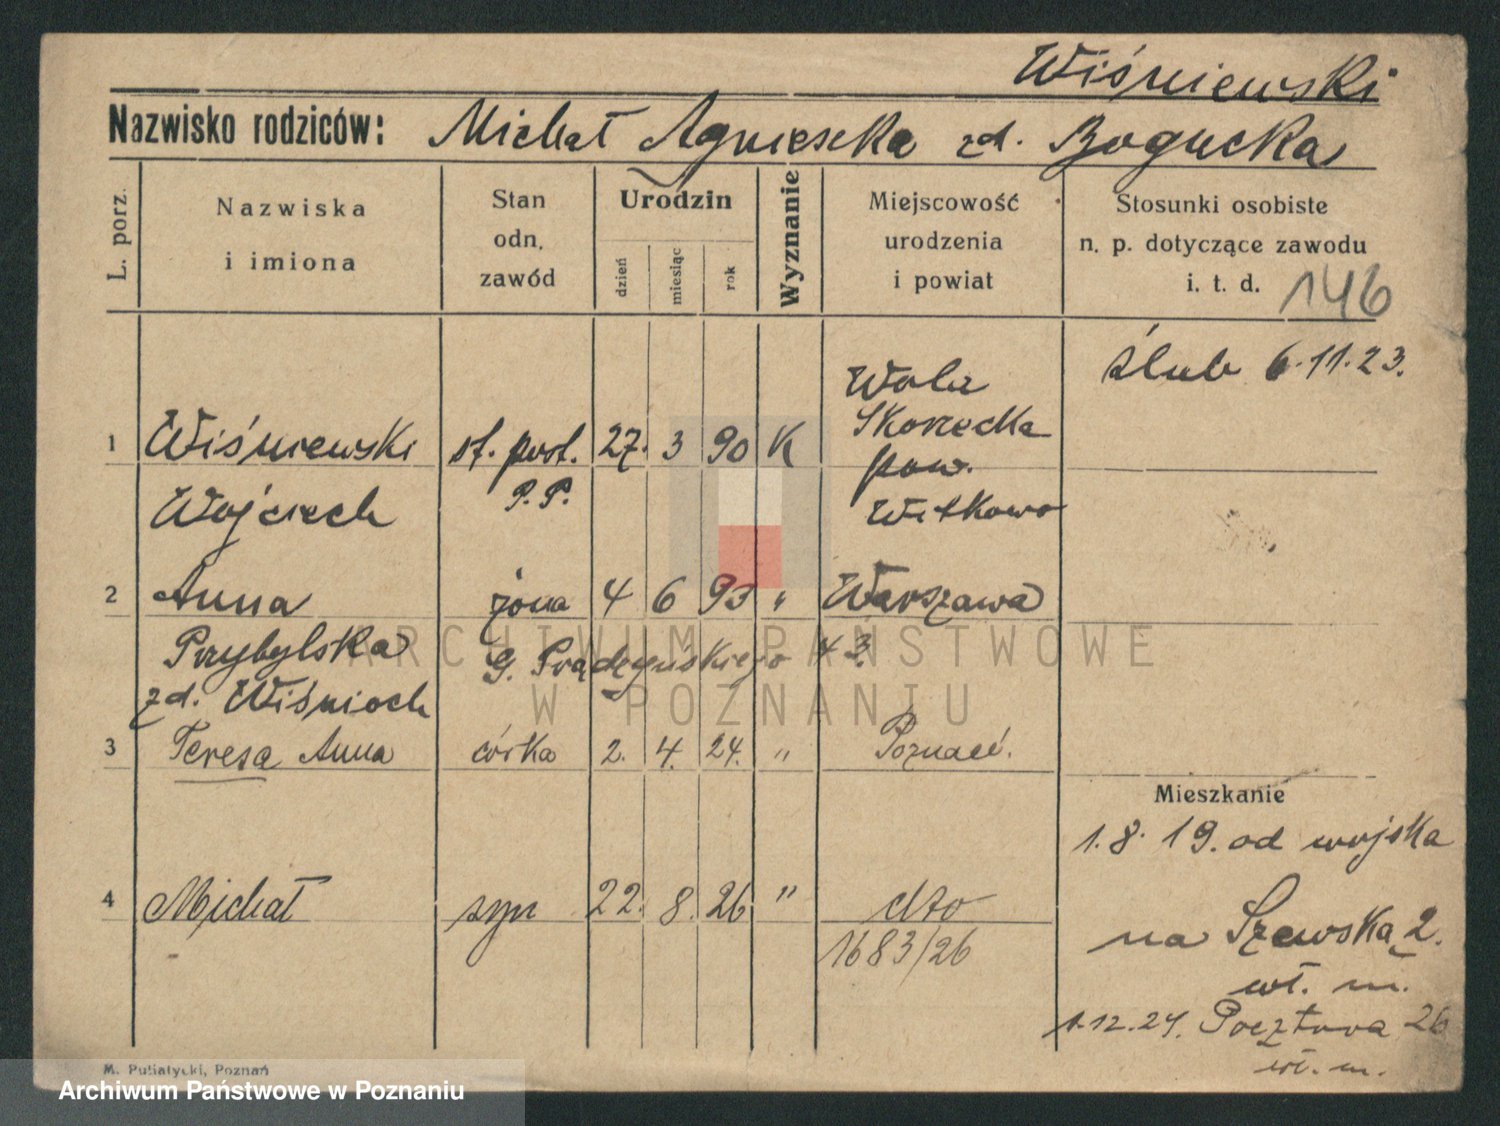 Wiśniewski
Nazwisko rodziców: Michał Agnieszka zd. Bogucka
L. porz.
Nazwiska
i imiona
Stan
odn.
zawód
Urodzin
dzień
miesiąc
rok
Wyznanie
Miejscowość
urodzenia
i powiat
Stosunki osobiste
n. p. dotyczące zawodu
i. t. d.
146
ślub 6.11.23.
1 Wiśniewski st. post. 27. 3 90 K Wola
Skorzęcka
pow.
Witkowo
Wojciech P. P.
2 Anna żona 4 6 93 " Warszawa
Przybylska
zd. Wiśnioch
3 Teresa Anna córka 2. 4. 24. " Poznań.
Mieszkanie
1.8.19. od wojska
4 Michał syn 22. 8. 26 " dto
1683/26
na Szewska 2.
wł. m.
1.12.24. Pocztowa 26
wł. m.
M. Putiatycki, Poznań
ARCHIWUM PAŃSTWOWE
W POZNANIU
Archiwum Państwowe w Poznaniu